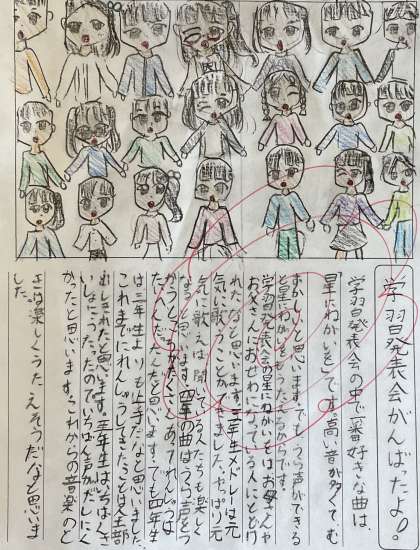 学習発表会がんばたよ!。
学習発表会の中で一番好きな曲は、
「星にねがいを」です。高い音が多くて、む
ずかしいと思います。でも、うら声ができる
と星にねがいをもうたえるからです。
学習発表会の星にねがいをはお母さんや
お父さんにおせわになっている人にとどけ
れたなと思います。三年生メドレーは元
気に歌うことができました。やっぱり元
気に歌えば聞いている人たちも楽しく
なると思います。四年の曲はうら声をつ
かうところがたくさんあってれんしゅうは
たいへんだったと思います。でも四年生
は三年生よりも上手だなと思いました。
これまでにれんしゅうしてきたことは全部
むしされたと思います。三年生はちはくさ
いしょにうたったのでいちばん声がだしにく
かったと思います。これからの音楽のと
きは楽しくうたえそうだなと思いま
した。